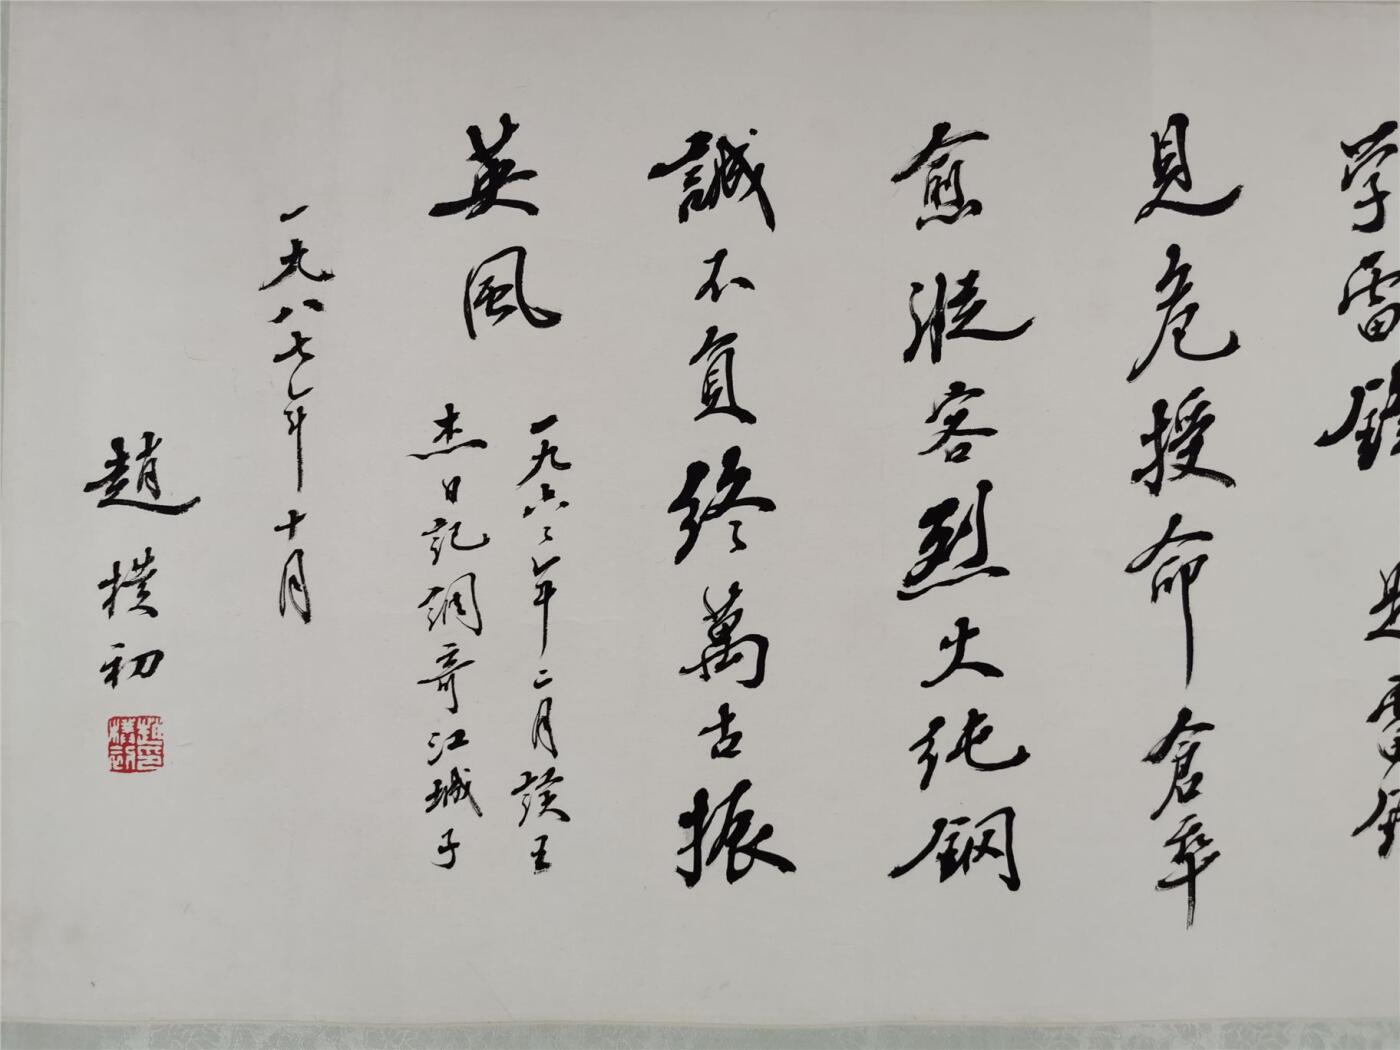 学雷鋒 是雷鋒
見危授命倉卒
愈從容烈火純鋼
誠不負終萬古振
英風
一九六六年二月讀王
杰日記調寄江城子
一九八七年十月
趙樸初
趙樸初印